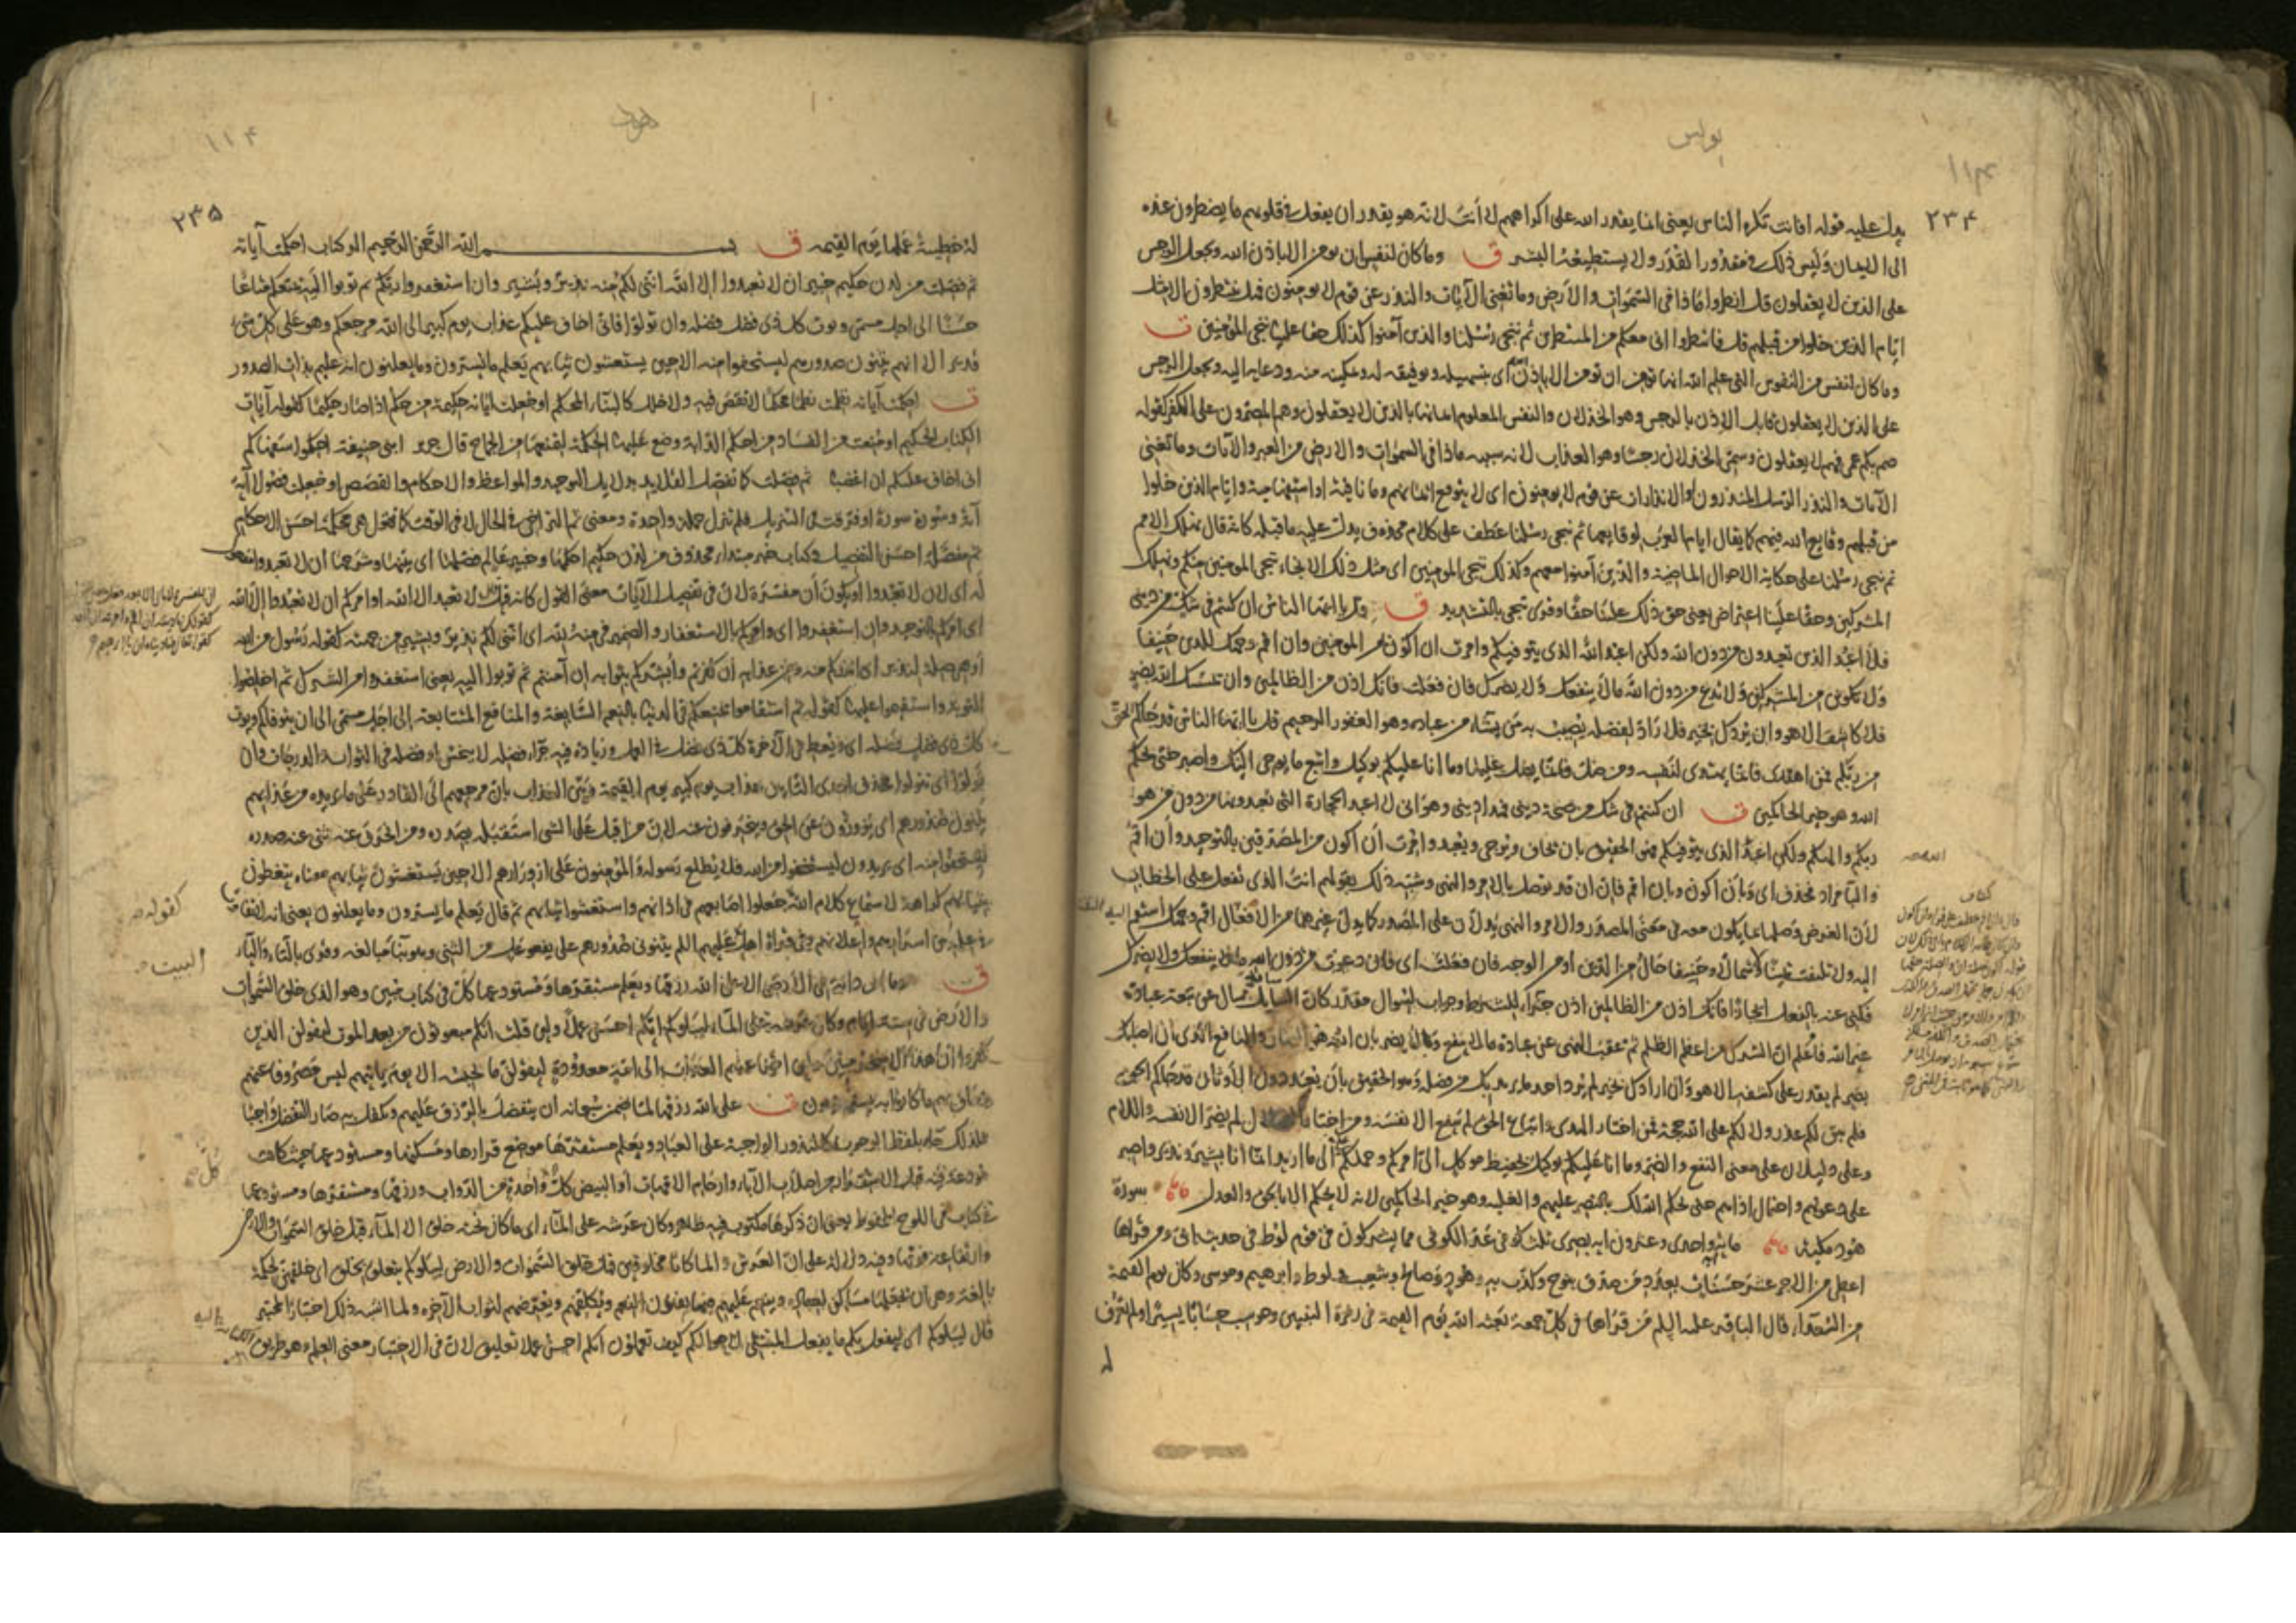 يونس
١١٤
٢٣٤
يدل عليه قوله افانت تكره الناس يعني انما يقدر الله على اكراههم لا أنت لانه هو يقدر ان يفعل في قلوبهم ما يضطرون عنده
الى الايمان وليس ذلك في مقدور القُدَر ولا يستطيعه البشر ق وما كان لنفس ان تومن الا باذن الله ويجعل الرجس
على الذين لا يعقلون قل انظروا ماذا في السموات والارض وما تغني الآيات والنذر عن قوم لا يومنون فهل ينتظرون الا مثل
ايام الذين خلوا من قبلهم قل فانتظروا اني معكم من المنتظرين ثم ننجي رسلنا والذين آمنوا كذلك حقا علينا ننجي المؤمنين ق
وما كان لنفس من النفوس التي علم الله انها تومن ان تومن الا باذن الله أي بتسهيله وتوفيقه له وتمكينه منه ودعايه اليه ويجعل الرجس
على الذين لا يعقلون قابل الاذن بالرجس وهو الخذلان والنفس المعلوم ايمانها بالذين لا يعقلون وهم المصرون على الكفر كقوله
صم بكم عمي فهم لا يعقلون وسمي الخذلان رجسا وهو العذاب لانه سببه ماذا في السموات والارض من العبر والآيات وما تغني
الآيات والنذر الرسل المنذرون او الانذارات عن قوم لا يومنون اي لا يتوقع ايمانهم وما نافية او استفهامية وايام الذين خلوا
من قبلهم وقايع الله فيهم كما يقال ايام العرب لوقايعها ثم ننجي رسلنا عطف على كلام محذوف يدل عليه ما قبله كانه قال نهلك الامم
ثم ننجي رسلنا على حكاية الاحوال الماضية والذين آمنوا معهم وكذلك ننجي المومنين اي مثل ذلك الانجاء ننجي المومنين منكم ونهلك
المشركين وحقا علينا اعتراض يعني حق ذلك علينا حقا وقرئ ننجي بالتشديد ق قل يا ايها الناس ان كنتم في شك من ديني
فلا اعبد الذين تعبدون من دون الله ولكن اعبد الله الذي يتوفيكم وامرت ان اكون من المومنين وان اقم وجهك للدين حنيفا
ولا تكونن من المشركين ولا تدع من دون الله مالا ينفعك ولا يضرك فان فعلت فانك اذن من الظالمين وان يمسسك الله بضر
فلا كاشف له الا هو وان يردك بخير فلا رادّ لفضله يصيب به من يشاء من عباده وهو الغفور الرحيم قل يا ايها الناس قد جاكم الحق
من ربكم فمن اهتدى فانما يهتدي لنفسه ومن ضل فانما يضل عليها وما انا عليكم بوكيل واتبع ما يوحى اليك واصبر حتى يحكم
الله وهو خير الحاكمين ق ان كنتم في شك من صحة ديني فهذا ديني وهو اني لا اعبد الحجارة التي تعبدونها من دون من هو
ربكم والهكم ولكن اعبد الله الذي يتوفيكم فهو الحقيق بان يخاف ويرجى ويعبد وامرت ان اكون من المصدقين بالتوحيد وأن اقم
لان الغرض وصلها بما يكون معه في معنى المصدر والامر والنهي يدلان على المصدر كما يدل غيرهما من الافعال اقم وجهك استقم
اليه ولا تلتفت يمينا ولا شمالا وحنيفا حال من الدين او من الوجه فان فعلت اي فان دعوت من دون الله مالا ينفعك ولا يضرك
فكنى عنه بالفعل ايجازا فانك اذن من الظالمين اذن جزاء للشرط وجواب لسوال مقدر كان سايلا سال عن تبعة عبادة
غير الله فاعلم ان الشرك من اعظم الظلم ثم عقب النهي عن عبادة مالا ينفع ولا يضر بان الله هو الضار والنافع الذي ان اصابك
بضر لم يقدر على كشفه الا هو وان ارادك بخير لم يرد احد ما يريد بك من فضله وهو الحقيق بان يعبد دون الاوثان قد جاكم الحق
فلم يبق لكم عذر ولا لكم على الله حجة فمن اختار الهدى واتباع الحق لم ينفع الا نفسه ومن اختار الضلال لم يضر الا نفسه واللام
وعلى دليلان على معنى النفع والضر وما انا عليكم بوكيل بحفيظ موكل الي امركم وحملكم على ما اريد انما انا بشير ونذير واصبر
على دعوتهم واحتمال اذاهم حتى يحكم الله لك بالنصر عليهم والغلبة وهو خير الحاكمين لانه لا يحكم الا بالحق والعدل سورة
هود مكية ماية واحدى وعشرون اية بصري ثلث كوفي عدّ الكوفي مما يشركون في قوم لوط في حديث ابيّ ومن قراها
اعطي من الاجر عشر حسنات بعدد من صدق بنوح وكذب به وهود وصالح وشعيب ولوط وابرهيم وموسى وكان يوم القيمة
من السعداء قال الباقر عليه السلم من قراها في كل جمعة بعثه الله يوم القيمة في زمرة النبيين وحوسب حسابا يسيرا ولم تعرف
له
هود
١١٤
٢٣٥
له خطيئة عملها يوم القيمه ق بسم الله الرحمن الرحيم الر كتاب احكمت آياته
ثم فصلت من لدن حكيم خبير ان لا تعبدوا الا الله انني لكم منه نذير وبشير وان استغفروا ربكم ثم توبوا اليه يمتعكم متاعا
حسنا الى اجل مسمى ويوت كل ذي فضل فضله وان تولوا فاني اخاف عليكم عذاب يوم كبير الى الله مرجعكم وهو على كل شيء
قدير الا انهم يثنون صدورهم ليستخفوا منه الا حين يستغشون ثيابهم يعلم ما يسرون وما يعلنون انه عليم بذات الصدور
ق احكمت آياته نظمت نظما محكما لا نقص فيه ولا خلل كالبناء المحكم او جعلت اياته حكيمة من حكم اذا صار حكيما كقوله آيات
الكتاب الحكيم او منعت من الفساد من احكم الدابة وضع عليها الحكمة لتمنعها من الجماح قال جرير ابني حنيفة احكموا سفهاكم
اني اخاف عليكم ان اغضبا ثم فصلت كما تفصل القلايد بدلايل التوحيد والمواعظ والاحكام والقصص او جعلت فصولا آية
آية وسورة سورة او فرقت في التنزيل فلم تنزل جملة واحدة ومعنى ثم التراخي في الحال لا في الوقت كما تقول هي محكمة احسن الاحكام
ثم مفصلة احسن التفصيل وكتاب خبر مبتداء محذوف من لدن حكيم احكمها وخبير عالم فصلها اي بينها وشرحها ان لا تعبدوا مفعول
له اي لان لا تعبدوا او يكون أن مفسرة لان في تفصيل الآيات معنى القول كانه قيل لا تعبدوا الا الله او امركم ان لا تعبدوا الا الله
اي امركم بالتوحيد وان استغفروا اي وامركم بالاستغفار والضمير في منه لله اي انني لكم نذير وبشير من جهته كقوله رسول من الله
او هي صلة لنذير اي انذركم منه ومن عذابه ان كفرتم وابشركم بثوابه ان آمنتم ثم توبوا اليه يعني استغفروا من الشرك ثم اخلصوا
التوبة واستقيموا عليها كقوله ثم استقاموا يمتعكم في الدنيا بالنعم السابغة والمنافع المتتابعة الى اجل مسمى الى ان يتوفاكم ويوت
كل ذي فضل فضله اي ويعطي في الآخرة كل ذي فضل في العمل وزيادة فيه جزاء فضله لا يبخس او فضله في الثواب والدرجات وان
تولوا اي تتولوا فحذف احدى التاءين عذاب يوم كبير يوم القيمة وبيّن العذاب بان مرجعهم الى القادر على ما يريده من عذابهم
يثنون صدورهم اي يزورّون عن الحق وينحرفون عنه لان من اقبل على الشي استقبله بصدره ومن انحرف عنه ثنى عنه صدره
ليستخفوا منه اي يريدون ليستخفوا من الله فلا يطلع رسوله والمؤمنون على ازورارهم الا حين يستغشون ثيابهم معناه يتغطون
بثيابهم كراهة لاستماع كلام الله جعلوا اصابعهم في اذانهم واستغشوا ثيابهم ثم قال يعلم ما يسرون وما يعلنون يعني انه لا تفاوت
في علمه بين اسرارهم واعلانهم وفي قراءة اهل البيت عليهم السلم يثنوني صدورهم على يفعوعل من الثني وهو بناء مبالغه وقرئ بالتاء والياء
ق وما من دابة في الأرض الا على الله رزقها ويعلم مستقرها ومستودعها كل في كتاب مبين وهو الذي خلق السموات
والارض في ستة ايام وكان عرشه على الماء ليبلوكم ايكم احسن عملا ولئن قلت انكم مبعوثون من بعد الموت ليقولن الذين
كفروا ان هذا الا سحر مبين ولئن اخرنا عنهم العذاب الى امة معدودة ليقولن ما يحبسه الا يوم ياتيهم ليس مصروفا عنهم
وحاق بهم ما كانوا به يستهزؤن ق على الله رزقها لما ضمن سبحانه ان يتفضل بالرزق عليهم وتكفل به صار التفضل واجبا
فلذلك جاء بلفظ الوجوب كالنذور الواجبة على العباد ويعلم مستقرها موضع قرارها ومسكنها ومستودعها حيث كانت
في كتاب في اللوح المحفوظ يعني ان ذكرها مكتوب فيه ظاهر وكان عرشه على الماء اي ما كان تحته خلق الا الماء قبل خلق السموات والارض
وارتفاعه فوقها وفيه دلالة على ان العرش والماء كانا مخلوقين قبل خلق السموات والارض ليبلوكم يتعلق بخلق اي خلقهن لحكمة
قال ليبلوكم اي ليفعل بكم ما يفعل المبتلي لاحوالكم كيف تعملون ايكم احسن عملا تعليق لان في الاختبار معنى العلم وهو طريق
كقوله
البيت